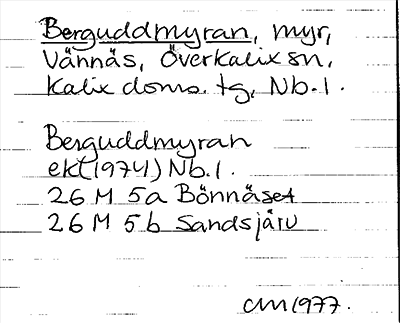 Berguddmyran, myr,
Vännäs, Överkalix sn,
Kalix doms. tg, Nb. l.
Berguddmyran
ekt (1974) Nb. l.
26 M 5a Bönnäset
26 M 5b Sandsjärv
CM 1977.